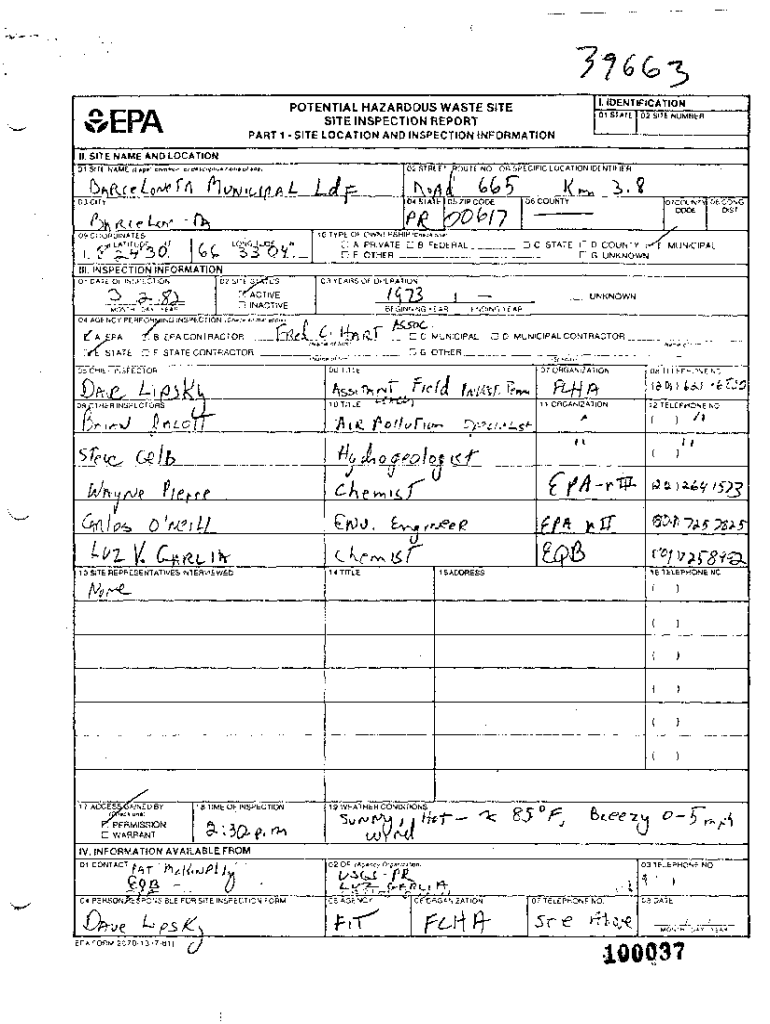 39663
EPA
POTENTIAL HAZARDOUS WASTE SITE
SITE INSPECTION REPORT
PART 1 - SITE LOCATION AND INSPECTION INFORMATION
I. IDENTIFICATION
01 STATE 02 SITE NUMBER
II. SITE NAME AND LOCATION
01 SITE NAME (Legal, common, or descriptive name of site)
02 STREET, ROUTE NO., OR SPECIFIC LOCATION IDENTIFIER
BARCELONETA MUNICIPAL LdF
ROAD 665 Km 3.8
03 CITY
04 STATE 05 ZIP CODE 06 COUNTY 07 COUNTY CODE 08 CONG DIST
PR 00617
09 COORDINATES
LATITUDE LONGITUDE
1 8 24 30. 66 33 04.
10 TYPE OF OWNERSHIP (Check one)
A. PRIVATE B. FEDERAL C. STATE D. COUNTY E. MUNICIPAL
F. OTHER G. UNKNOWN
III. INSPECTION INFORMATION
01 DATE OF INSPECTION 02 SITE STATUS 03 YEARS OF OPERATION
3 2 82
MONTH DAY YEAR
ACTIVE
INACTIVE
1973 | —
BEGINNING YEAR ENDING YEAR
UNKNOWN
04 AGENCY PERFORMING INSPECTION (Check all that apply)
A. EPA B. EPA CONTRACTOR Fred C. HART Assoc. C. MUNICIPAL D. MUNICIPAL CONTRACTOR
E. STATE F. STATE CONTRACTOR G. OTHER
05 CHIEF INSPECTOR 06 TITLE 07 ORGANIZATION 08 TELEPHONE NO.
DAVE LIPSKY Assistant Field Invest. Team FLHA
09 OTHER INSPECTORS 10 TITLE 11 ORGANIZATION 12 TELEPHONE NO.
Air Pollution Specialist " ( ) "
Steve Gelb Hydrogeologist " ( ) "
Wayne Pierre Chemist EPA-r II 201 2641573
Carlos O'Neill ENV. Engineer EPA r II 809 7257825
LUZ V. GARCIA Chemist EQB
13 SITE REPRESENTATIVES INTERVIEWED 14 TITLE 15 ADDRESS 16 TELEPHONE NO
None ( )
( )
( )
( )
( )
( )
17 ACCESS GAINED BY
(Check one)
PERMISSION
WARRANT
18 TIME OF INSPECTION
2:30 p.m
19 WEATHER CONDITIONS
SUNNY, Hot - ≈ 85°F, Breezy 0-5 mph
wind
IV. INFORMATION AVAILABLE FROM
01 CONTACT 02 OF (Agency/Organization) 03 TELEPHONE NO.
EQB -
USGS - PR
LUZ GARCIA
04 PERSON RESPONSIBLE FOR SITE INSPECTION FORM 05 AGENCY 06 ORGANIZATION 07 TELEPHONE NO. 08 DATE
Dave Lipsky FIT FLHA see above
MONTH DAY YEAR
EPA FORM 2070-13 (7-81)
100037